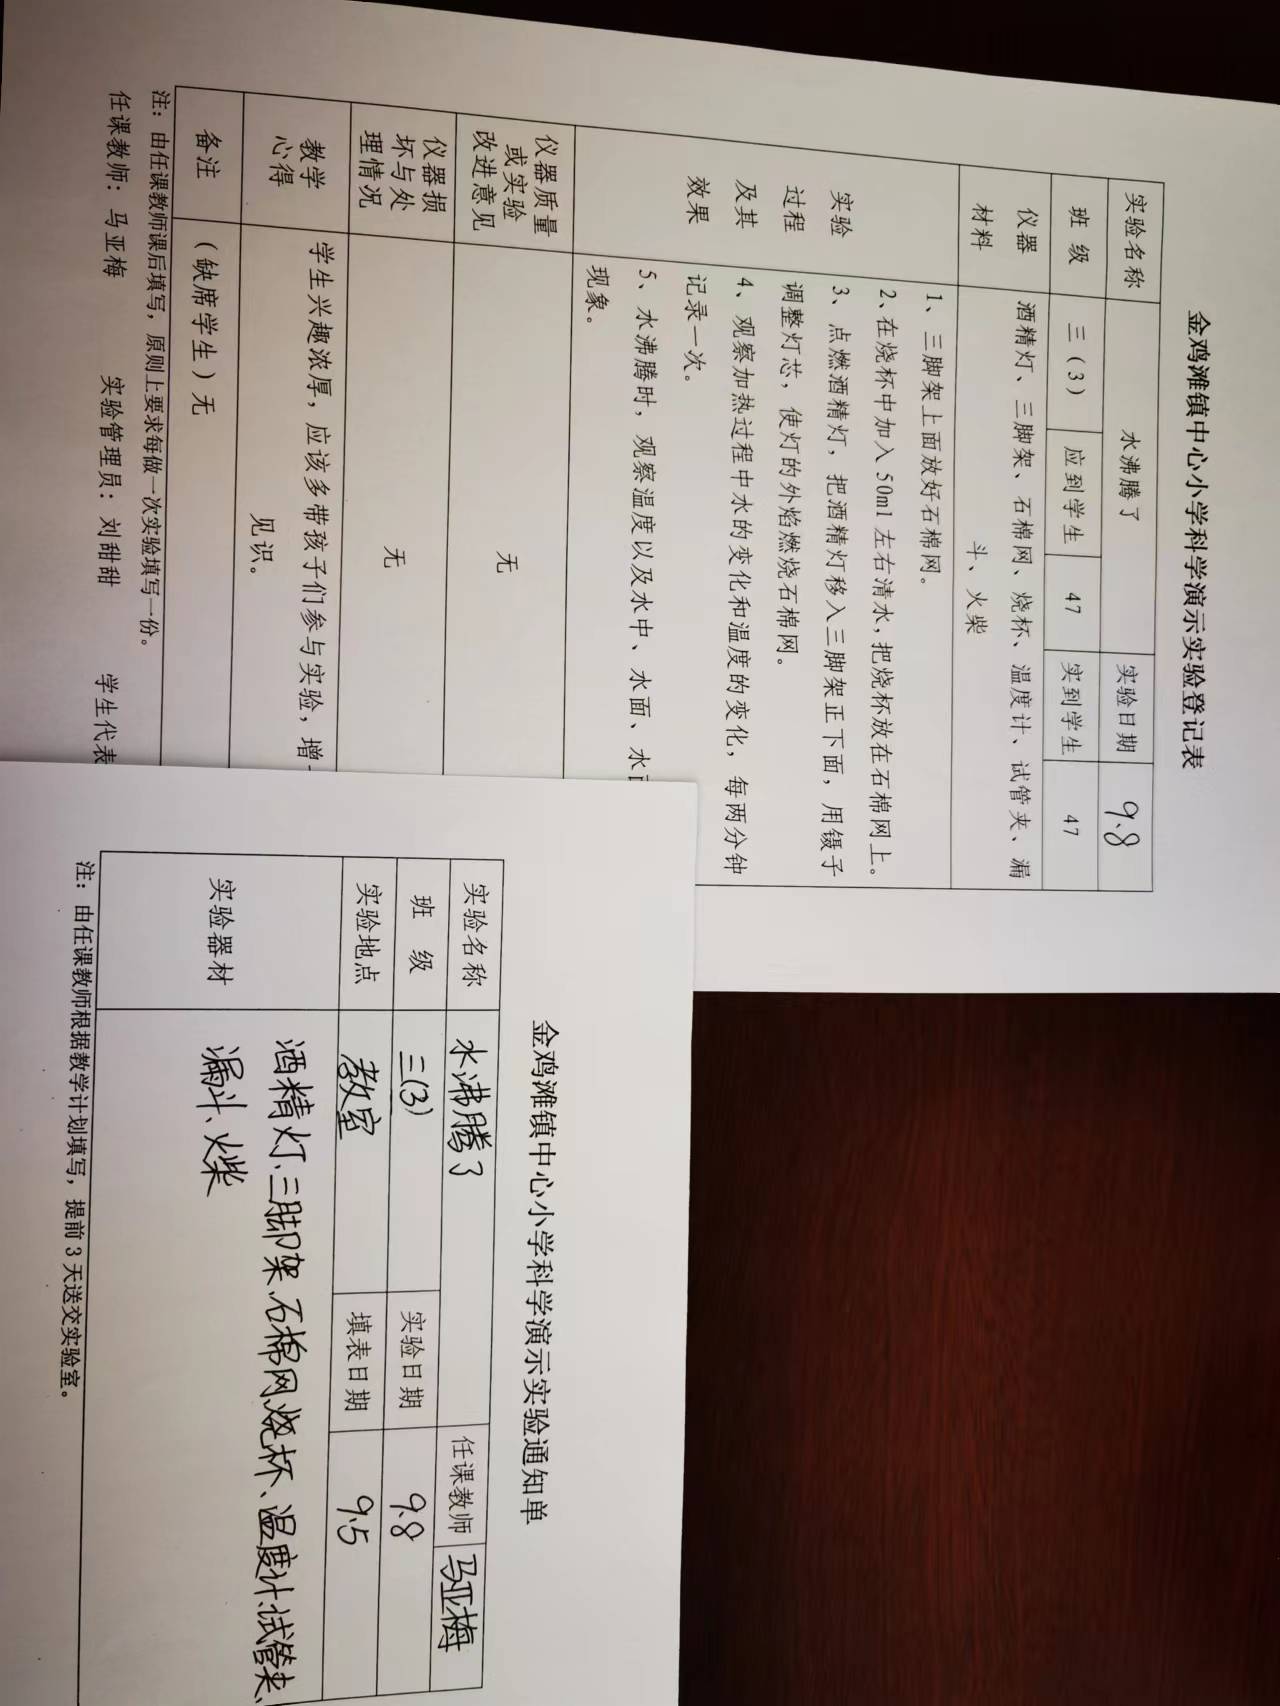 金鸡滩镇中心小学科学演示实验登记表
实验名称 水沸腾了 实验日期 9.8
班 级 三（3） 应到学生 47 实到学生 47
仪器
材料
酒精灯、三脚架、石棉网、烧杯、温度计、试管夹、漏
斗、火柴
实验
过程
及其
效果
1、三脚架上面放好石棉网。
2、在烧杯中加入 50ml 左右清水，把烧杯放在石棉网上。
3、点燃酒精灯，把酒精灯移入三脚架正下面，用镊子
调整灯芯，使灯的外焰燃烧石棉网。
4、观察加热过程中水的变化和温度的变化，每两分钟
记录一次。
5、水沸腾时，观察温度以及水中、水面、水
现象。
仪器质量
或实验
改进意见
无
仪器损
坏与处
理情况
无
教学
心得
学生兴趣浓厚，应该多带孩子们参与实验，增
见识。
备注 （缺席学生）无
注：由任课教师课后填写，原则上要求每做一次实验填写一份。
任课教师：马亚梅 实验管理员：刘甜甜 学生代表
金鸡滩镇中心小学科学演示实验通知单
实验名称 水沸腾了 任课教师 马亚梅
班 级 三(3) 实验日期 9.8
实验地点 教室 填表日期 9.5
实验器材
酒精灯、三脚架、石棉网、烧杯、温度计、试管夹、
漏斗、火柴
注：由任课教师根据教学计划填写，提前 3 天送交实验室。